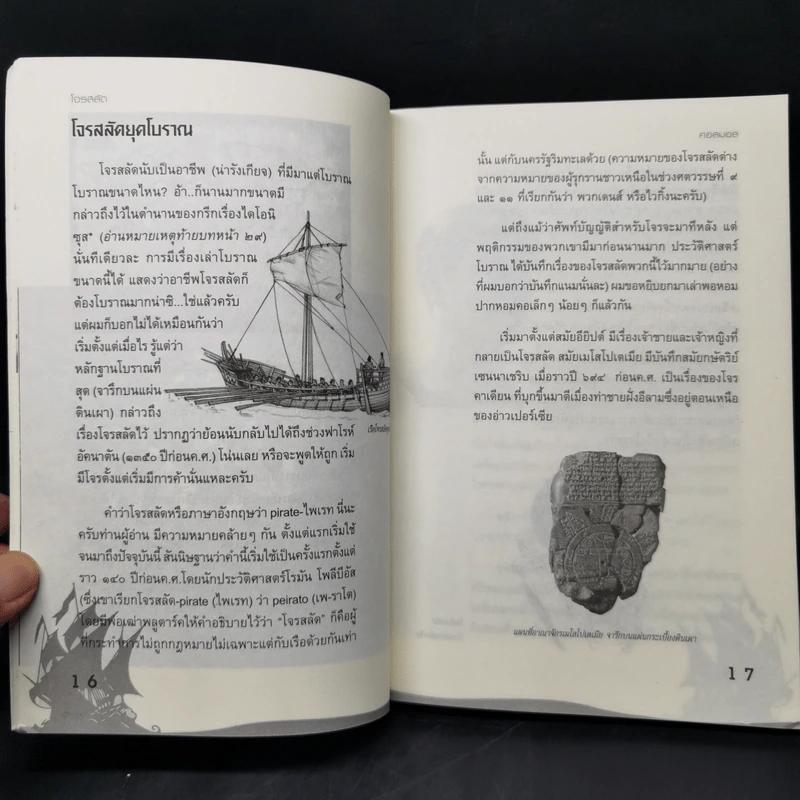 โจรสลัด
โจรสลัดยุคโบราณ
โจรสลัดนับเป็นอาชีพ (น่ารังเกียจ) ที่มีมาแต่โบราณ
โบราณขนาดไหน? อ้า..ก็นานมากขนาดมี
กล่าวถึงไว้ในตำนานของกรีกเรื่องไดโอนิ
ซุส* (อ่านหมายเหตุท้ายบทหน้า ๒๙)
นั่นทีเดียวละ การมีเรื่องเล่าโบราณ
ขนาดนี้ได้ แสดงว่าอาชีพโจรสลัดก็
ต้องโบราณมากน่าซิ...ใช่แล้วครับ
แต่ผมก็บอกไม่ได้เหมือนกันว่า
เริ่มตั้งแต่เมื่อไร รู้แต่ว่า
หลักฐานโบราณที่
สุด (จารึกบนแผ่น
ดินเผา) กล่าวถึง
เรื่องโจรสลัดไว้ ปรากฏว่าย้อนนับกลับไปได้ถึงช่วงฟาโรห์
อัคนาตัน (๑๓๕๐ ปีก่อนค.ศ.) โน่นเลย หรือจะพูดให้ถูก เริ่ม
มีโจรตั้งแต่เริ่มมีการค้านั่นแหละครับ
คำว่าโจรสลัดหรือภาษาอังกฤษว่า pirate-ไพเรท นี่นะ
ครับท่านผู้อ่าน มีความหมายคล้ายๆ กัน ตั้งแต่แรกเริ่มใช้
จนมาถึงปัจจุบันนี้ สันนิษฐานว่าคำนี้เริ่มใช้เป็นครั้งแรกตั้งแต่
ราว ๑๔๐ ปีก่อนค.ศ.โดยนักประวัติศาสตร์โรมัน โพลีบีอัส
(ซึ่งเขาเรียกโจรสลัด-pirate (ไพเรท) ว่า peirato (เพ-ราโต)
โดยมีพ่อเฒ่าพลูตาร์คให้คำอธิบายไว้ว่า "โจรสลัด" ก็คือผู้
ที่กระทำการไม่ถูกกฎหมายไม่เฉพาะแต่กับเรือด้วยกันเท่า
16
คอลมอล
นั้น แต่กับนครรัฐริมทะเลด้วย (ความหมายของโจรสลัดต่าง
จากความหมายของผู้รุกรานชาวเหนือในช่วงศตวรรษที่ ๙
และ ๑๑ ที่เรียกกันว่า พวกเดนส์ หรือไวกิ้งนะครับ)
แต่ถึงแม้ว่าศัพท์บัญญัติสำหรับโจรจะมาทีหลัง แต่
พฤติกรรมของพวกเขามีมาก่อนนานมาก ประวัติศาสตร์
โบราณ ได้บันทึกเรื่องของโจรสลัดพวกนี้ไว้มากมาย (อย่าง
ที่ผมบอกว่าบันทึกแนมนั่นละ) ผมขอหยิบยกมาเล่าพอหอม
ปากหอมคอเล็กๆ น้อยๆ ก็แล้วกัน
เริ่มมาตั้งแต่สมัยอียิปต์ มีเรื่องเจ้าชายและเจ้าหญิงที่
กลายเป็นโจรสลัด สมัยเมโสโปเตเมีย มีบันทึกสมัยกษัตริย์
เซนนาเชริบ เมื่อราวปี ๖๙๔ ก่อนค.ศ. เป็นเรื่องของโจร
คาเดียน ที่บุกขึ้นมาตีเมืองท่าชายฝั่งอีลามซึ่งอยู่ตอนเหนือ
ของอ่าวเปอร์เซีย
แผนที่อาณาจักรเมโสโปเตเมีย จารึกบนแผ่นกระเบื้องดินเผา
17